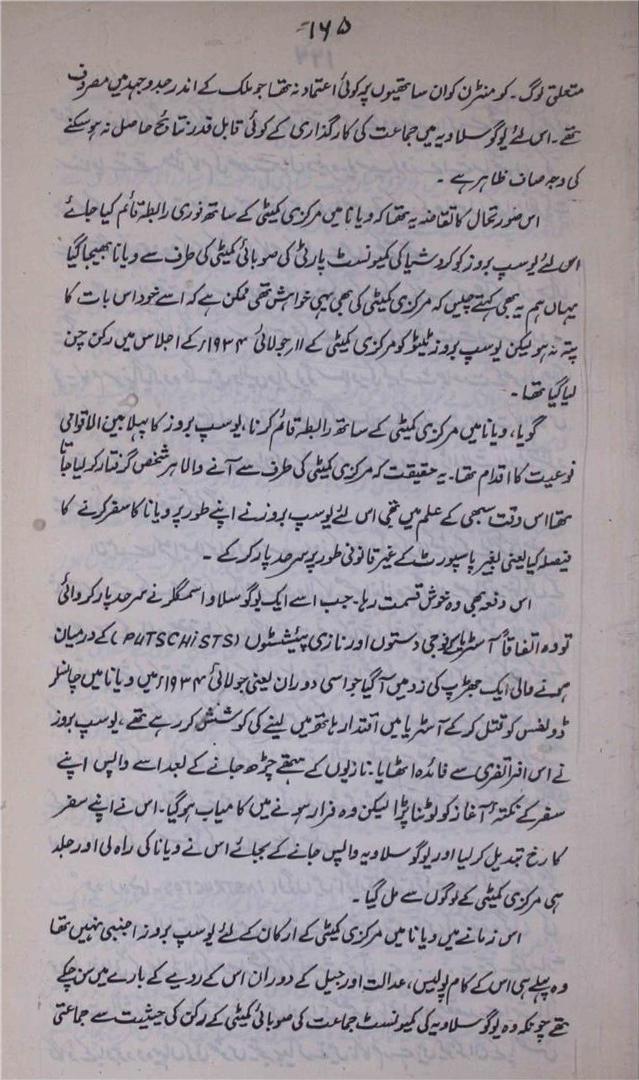 ۱۶۵
متعلق لوگ۔ کومنٹرن کو ان ساتھیوں پر کوئی اعتماد نہ تھا جو ملک کے اندر جدوجہد میں مصروف
تھے۔ اس لئے یوگوسلاویہ میں جماعت کی کارگذاری کے کوئی قابل قدر نتائج حاصل نہ ہو سکنے
کی وجہ صاف ظاہر ہے ۔
اس صورتحال کا تقاضہ یہ تھا کہ ویانا میں مرکزی کمیٹی کے ساتھ فوری رابطہ قائم کیا جائے
اس لئے یوسپ بروز کو کروشیا کی کمیونسٹ پارٹی کی صوبائی کمیٹی کی طرف سے ویانا بھیجا گیا
یہاں ہم یہ بھی کہتے چلیں کہ مرکزی کمیٹی کی بھی یہی خواہش تھی ممکن ہے کہ اسے خود اس بات کا
پتہ نہ ہو لیکن یوسپ بروز ٹیٹو کو مرکزی کمیٹی کے ۱۱ر جولائی ۱۹۳۴ء کے اجلاس میں رکن چن
لیا گیا تھا ۔
گویا، ویانا میں مرکزی کمیٹی کے ساتھ رابطہ قائم کرنا، یوسپ بروز کا پہلا بین الاقوامی
نوعیت کا اقدام تھا۔ یہ حقیقت کہ مرکزی کمیٹی کی طرف سے آنے والا ہر شخص گرفتار کر لیا جاتا
تھا اس وقت سبھی کے علم میں تھی اس لئے یوسپ بروز نے اپنے طور پر ویانا کا سفر کرنے کا
فیصلہ کیا یعنی بغیر پاسپورٹ کے غیر قانونی طور پر سرحد پار کر کے ۔
اس دفعہ بھی وہ خوش قسمت رہا۔ جب اسے ایک یوگوسلاو اسمگلر نے سرحد پار کروائی
تو وہ اتفاقاً آسٹریا کے فوجی دستوں اور نازی پیٹسٹوں (PUTSCHISTS) کے درمیان
ہونے والی ایک جھڑپ کی زد میں آ گیا جو اسی دوران یعنی جولائی ۱۹۳۴ء میں ویانا میں چانسلر
ڈولفس کو قتل کر کے آسٹریا میں اقتدار ہاتھ میں لینے کی کوشش کر رہے تھے، یوسپ بروز
نے اس افراتفری سے فائدہ اٹھایا۔ نازیوں کے ہتھے چڑھ جانے کے بعد اسے واپس اپنے
سفر کے نکتۂ آغاز کو لوٹنا پڑا لیکن وہ فرار ہونے میں کامیاب ہو گیا۔ اس نے اپنے سفر
کا رخ تبدیل کر لیا اور یوگوسلاویہ واپس جانے کے بجائے اس نے ویانا کی راہ لی اور جلد
ہی مرکزی کمیٹی کے لوگوں سے مل گیا ۔
اس زمانے میں ویانا میں مرکزی کمیٹی کے ارکان کے لئے یوسپ بروز اجنبی نہیں تھا
وہ پہلے ہی اس کے کام پولیس، عدالت اور جیل کے دوران اس کے رویے کے بارے میں سن چکے
تھے چونکہ وہ یوگوسلاویہ کی کمیونسٹ جماعت کی صوبائی کمیٹی کے رکن کی حیثیت سے جماعتی